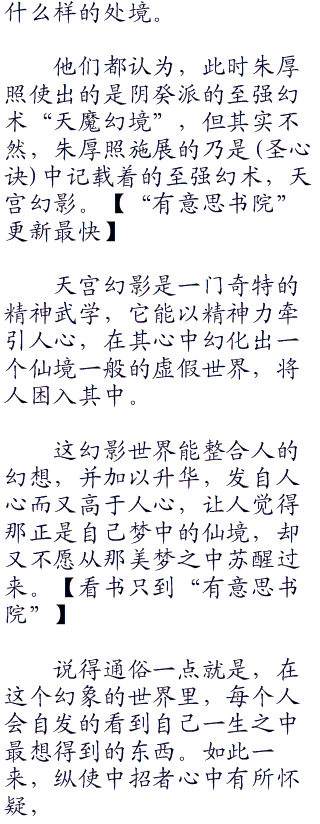 什么样的处境。
他们都认为，此时朱厚
照使出的是阴癸派的至强幻
术“天魔幻境”，但其实不
然，朱厚照施展的乃是(圣心
诀)中记载着的至强幻术，天
宫幻影。【“有意思书院”
更新最快】
天宫幻影是一门奇特的
精神武学，它能以精神力牵
引人心，在其心中幻化出一
个仙境一般的虚假世界，将
人困入其中。
这幻影世界能整合人的
幻想，并加以升华，发自人
心而又高于人心，让人觉得
那正是自己梦中的仙境，却
又不愿从那美梦之中苏醒过
来。【看书只到“有意思书
院”】
说得通俗一点就是，在
这个幻象的世界里，每个人
会自发的看到自己一生之中
最想得到的东西。如此一
来，纵使中招者心中有所怀
疑，